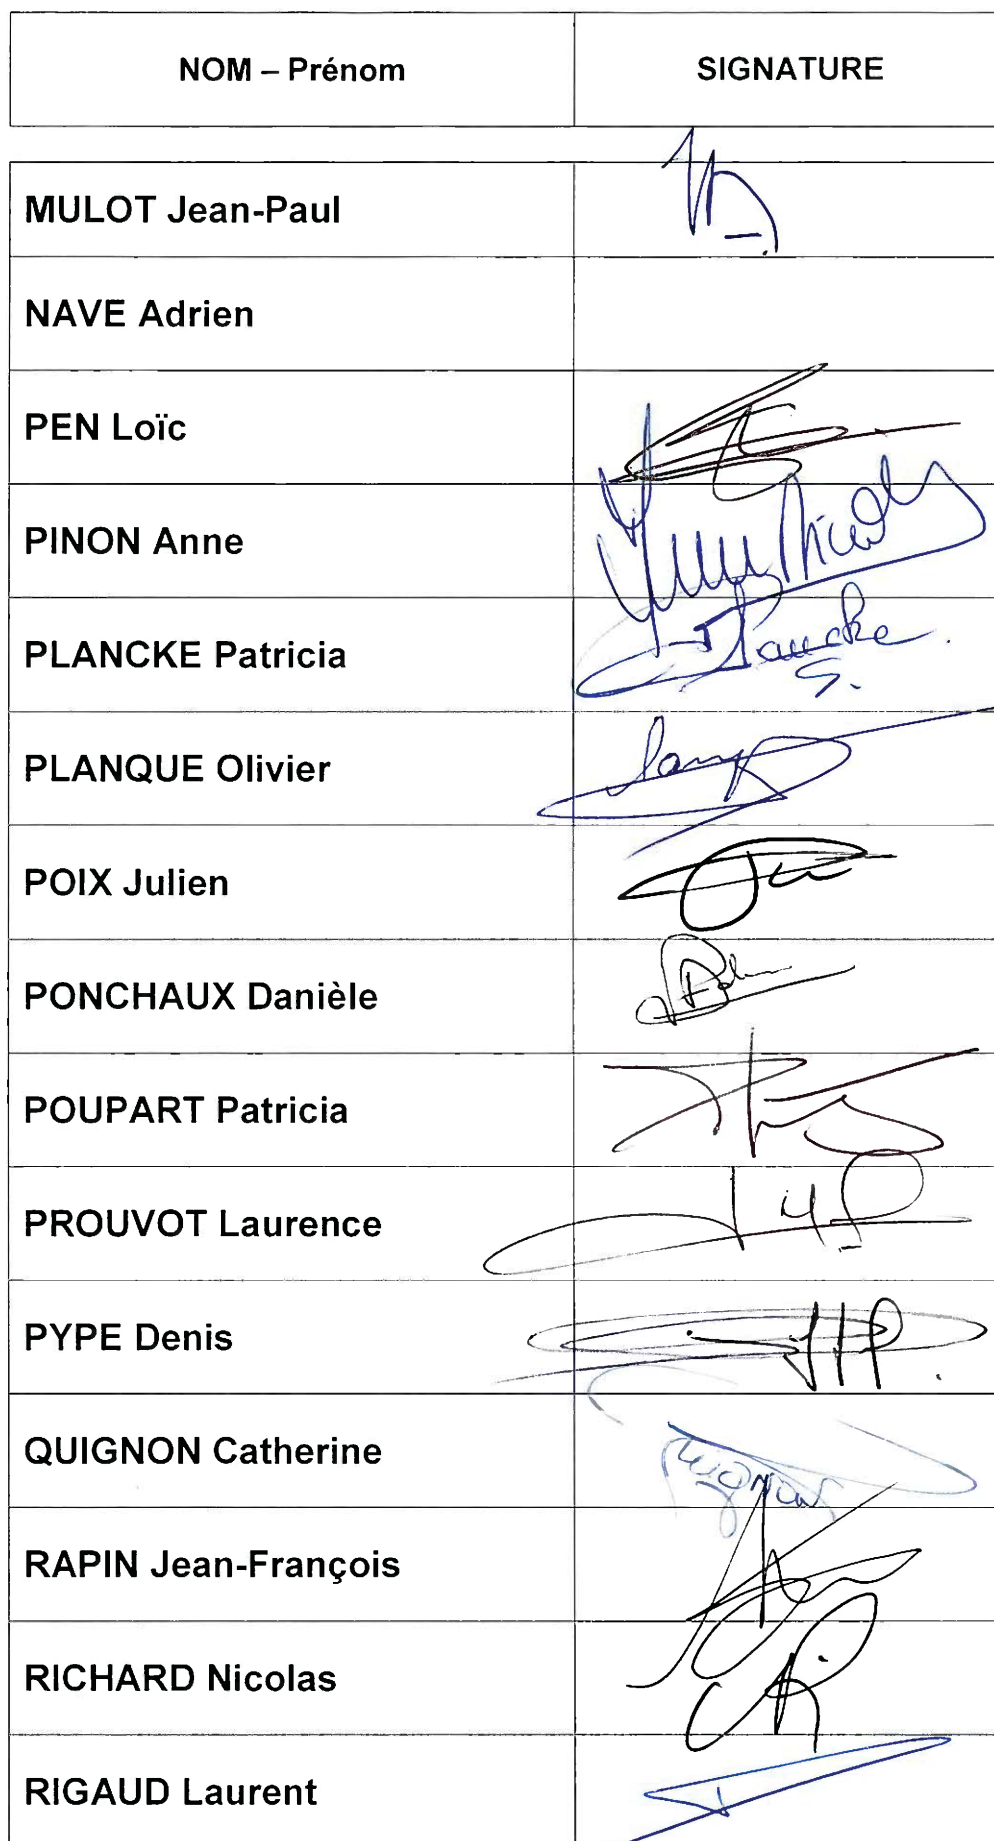 NOM – Prénom
SIGNATURE
MULOT Jean-Paul
NAVE Adrien
PEN Loïc
PINON Anne
PLANCKE Patricia
Plancke
PLANQUE Olivier
POIX Julien
PONCHAUX Danièle
POUPART Patricia
PROUVOT Laurence
PYPE Denis
QUIGNON Catherine
Quignon
RAPIN Jean-François
RICHARD Nicolas
RIGAUD Laurent